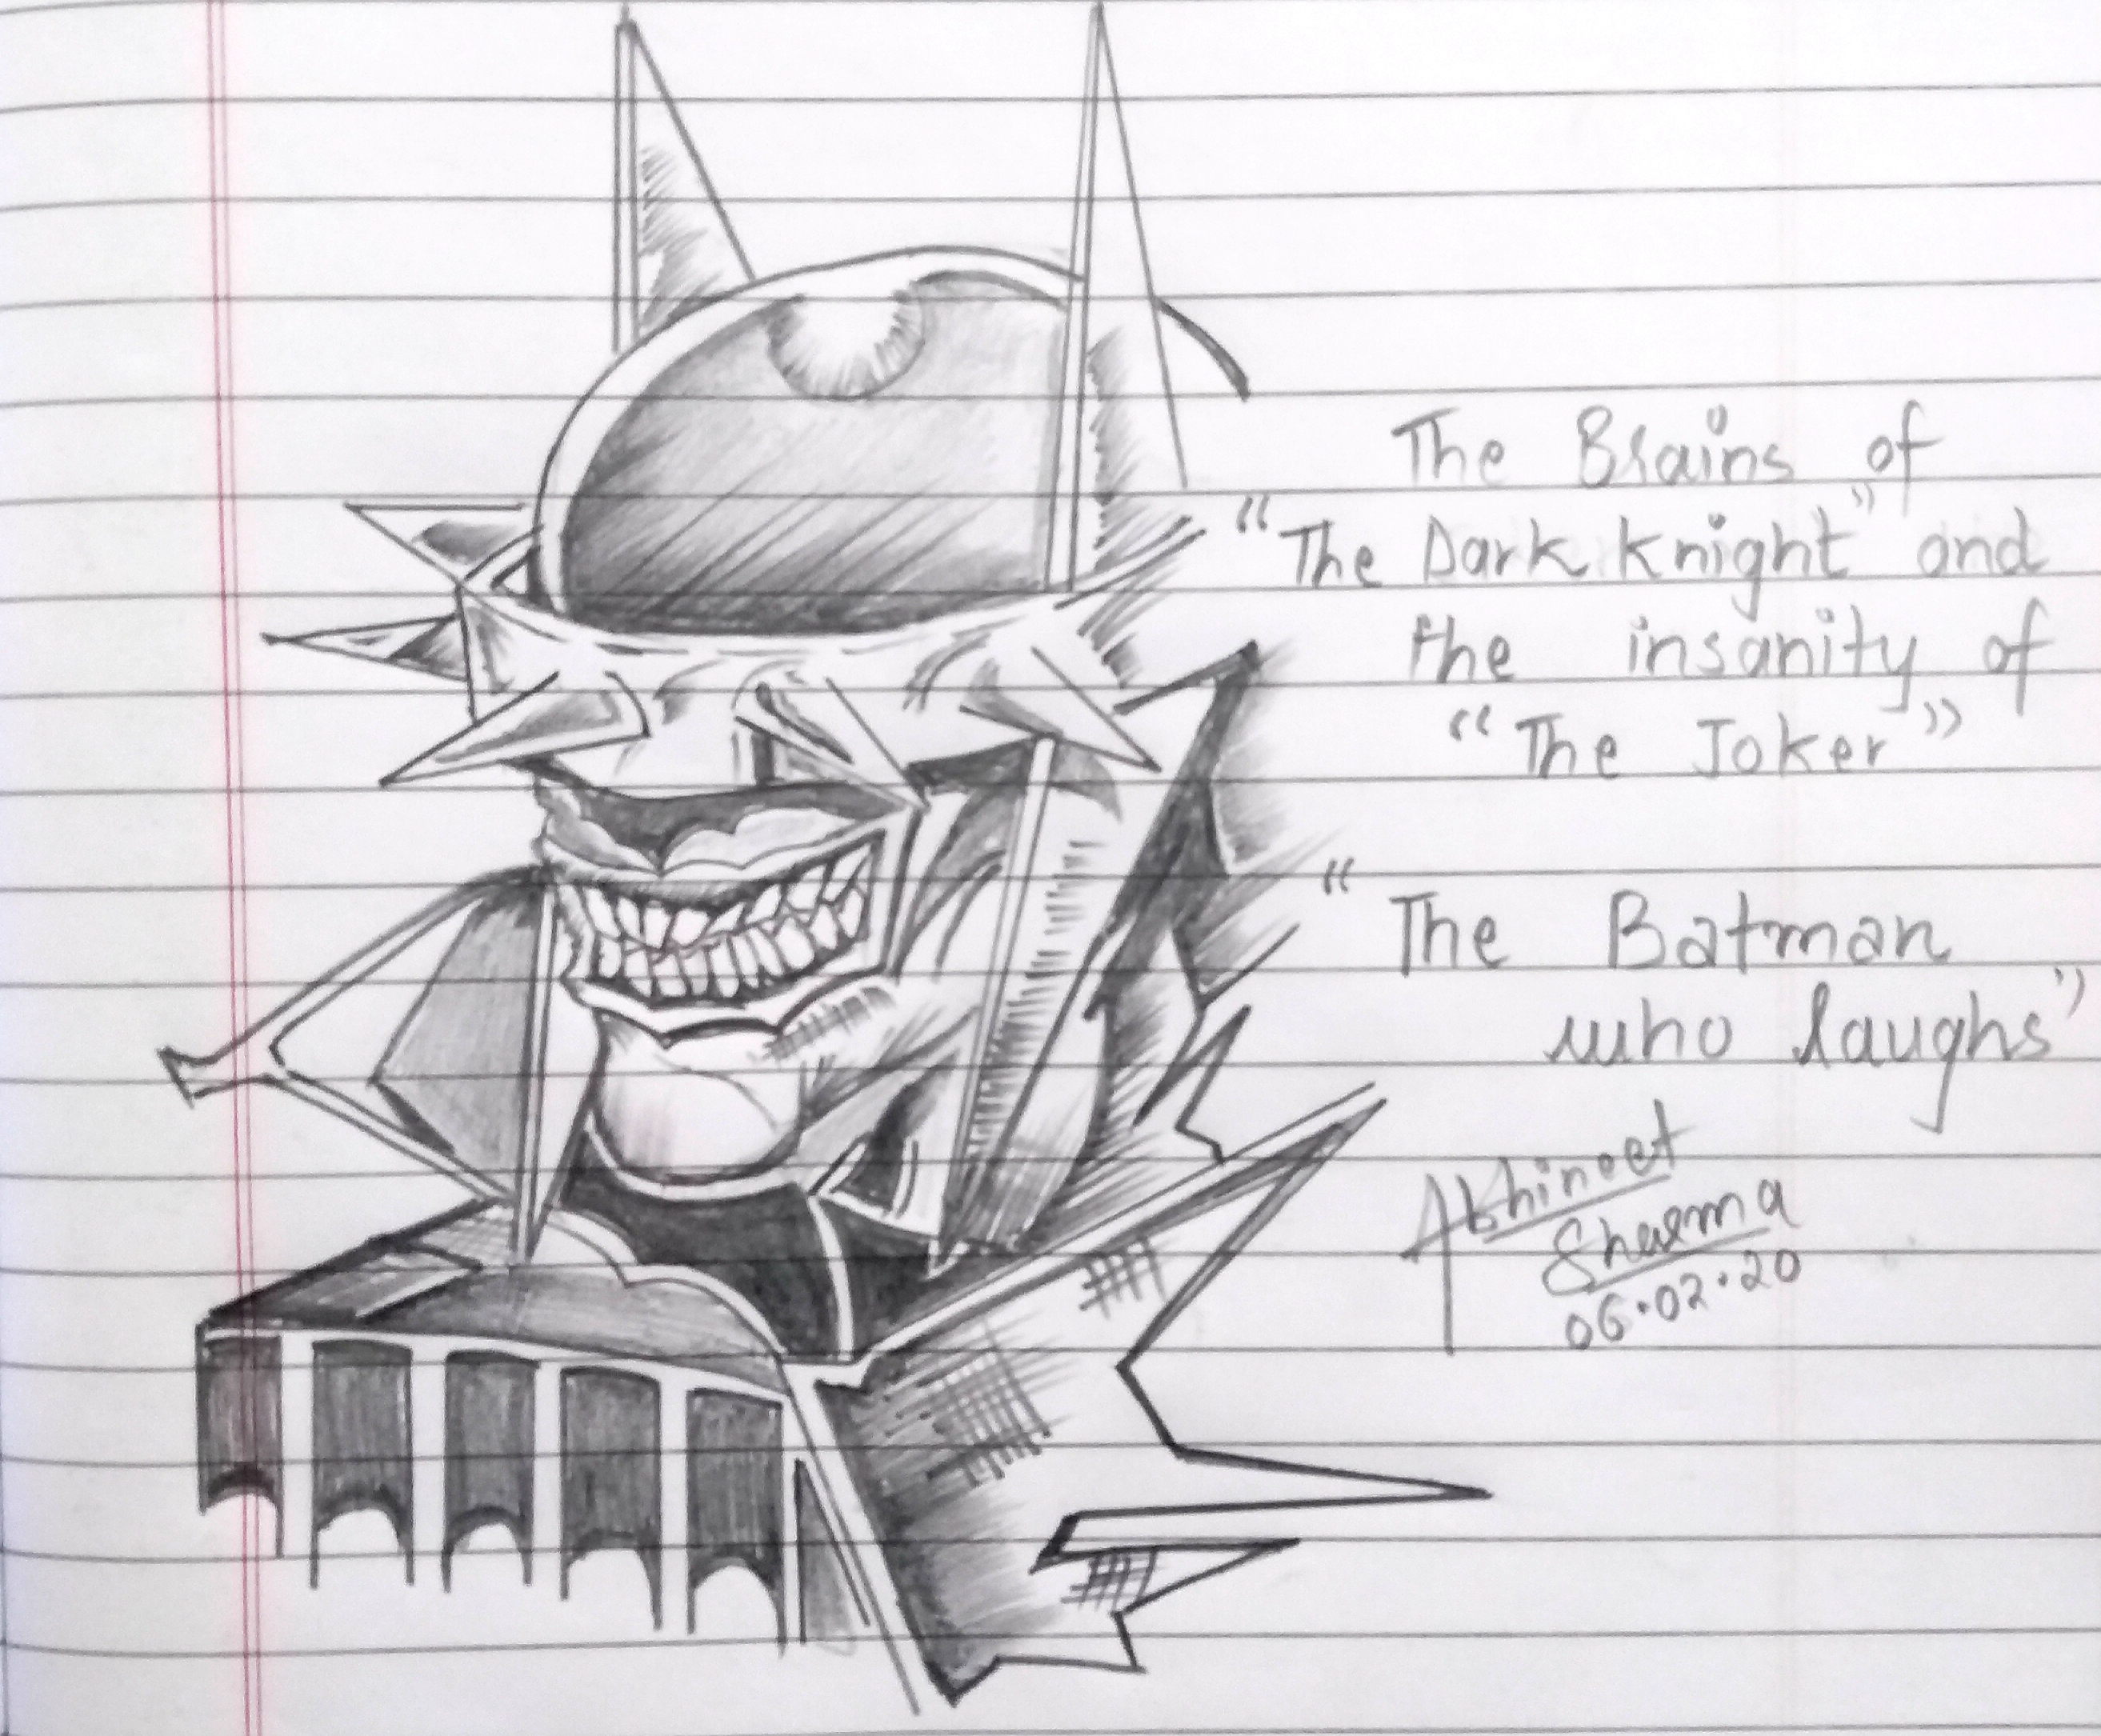 The Brains of
"The Dark Knight" and
the insanity of
"The Joker"
"The Batman
who laughs"
Abhineet
Sharma
06.02.20